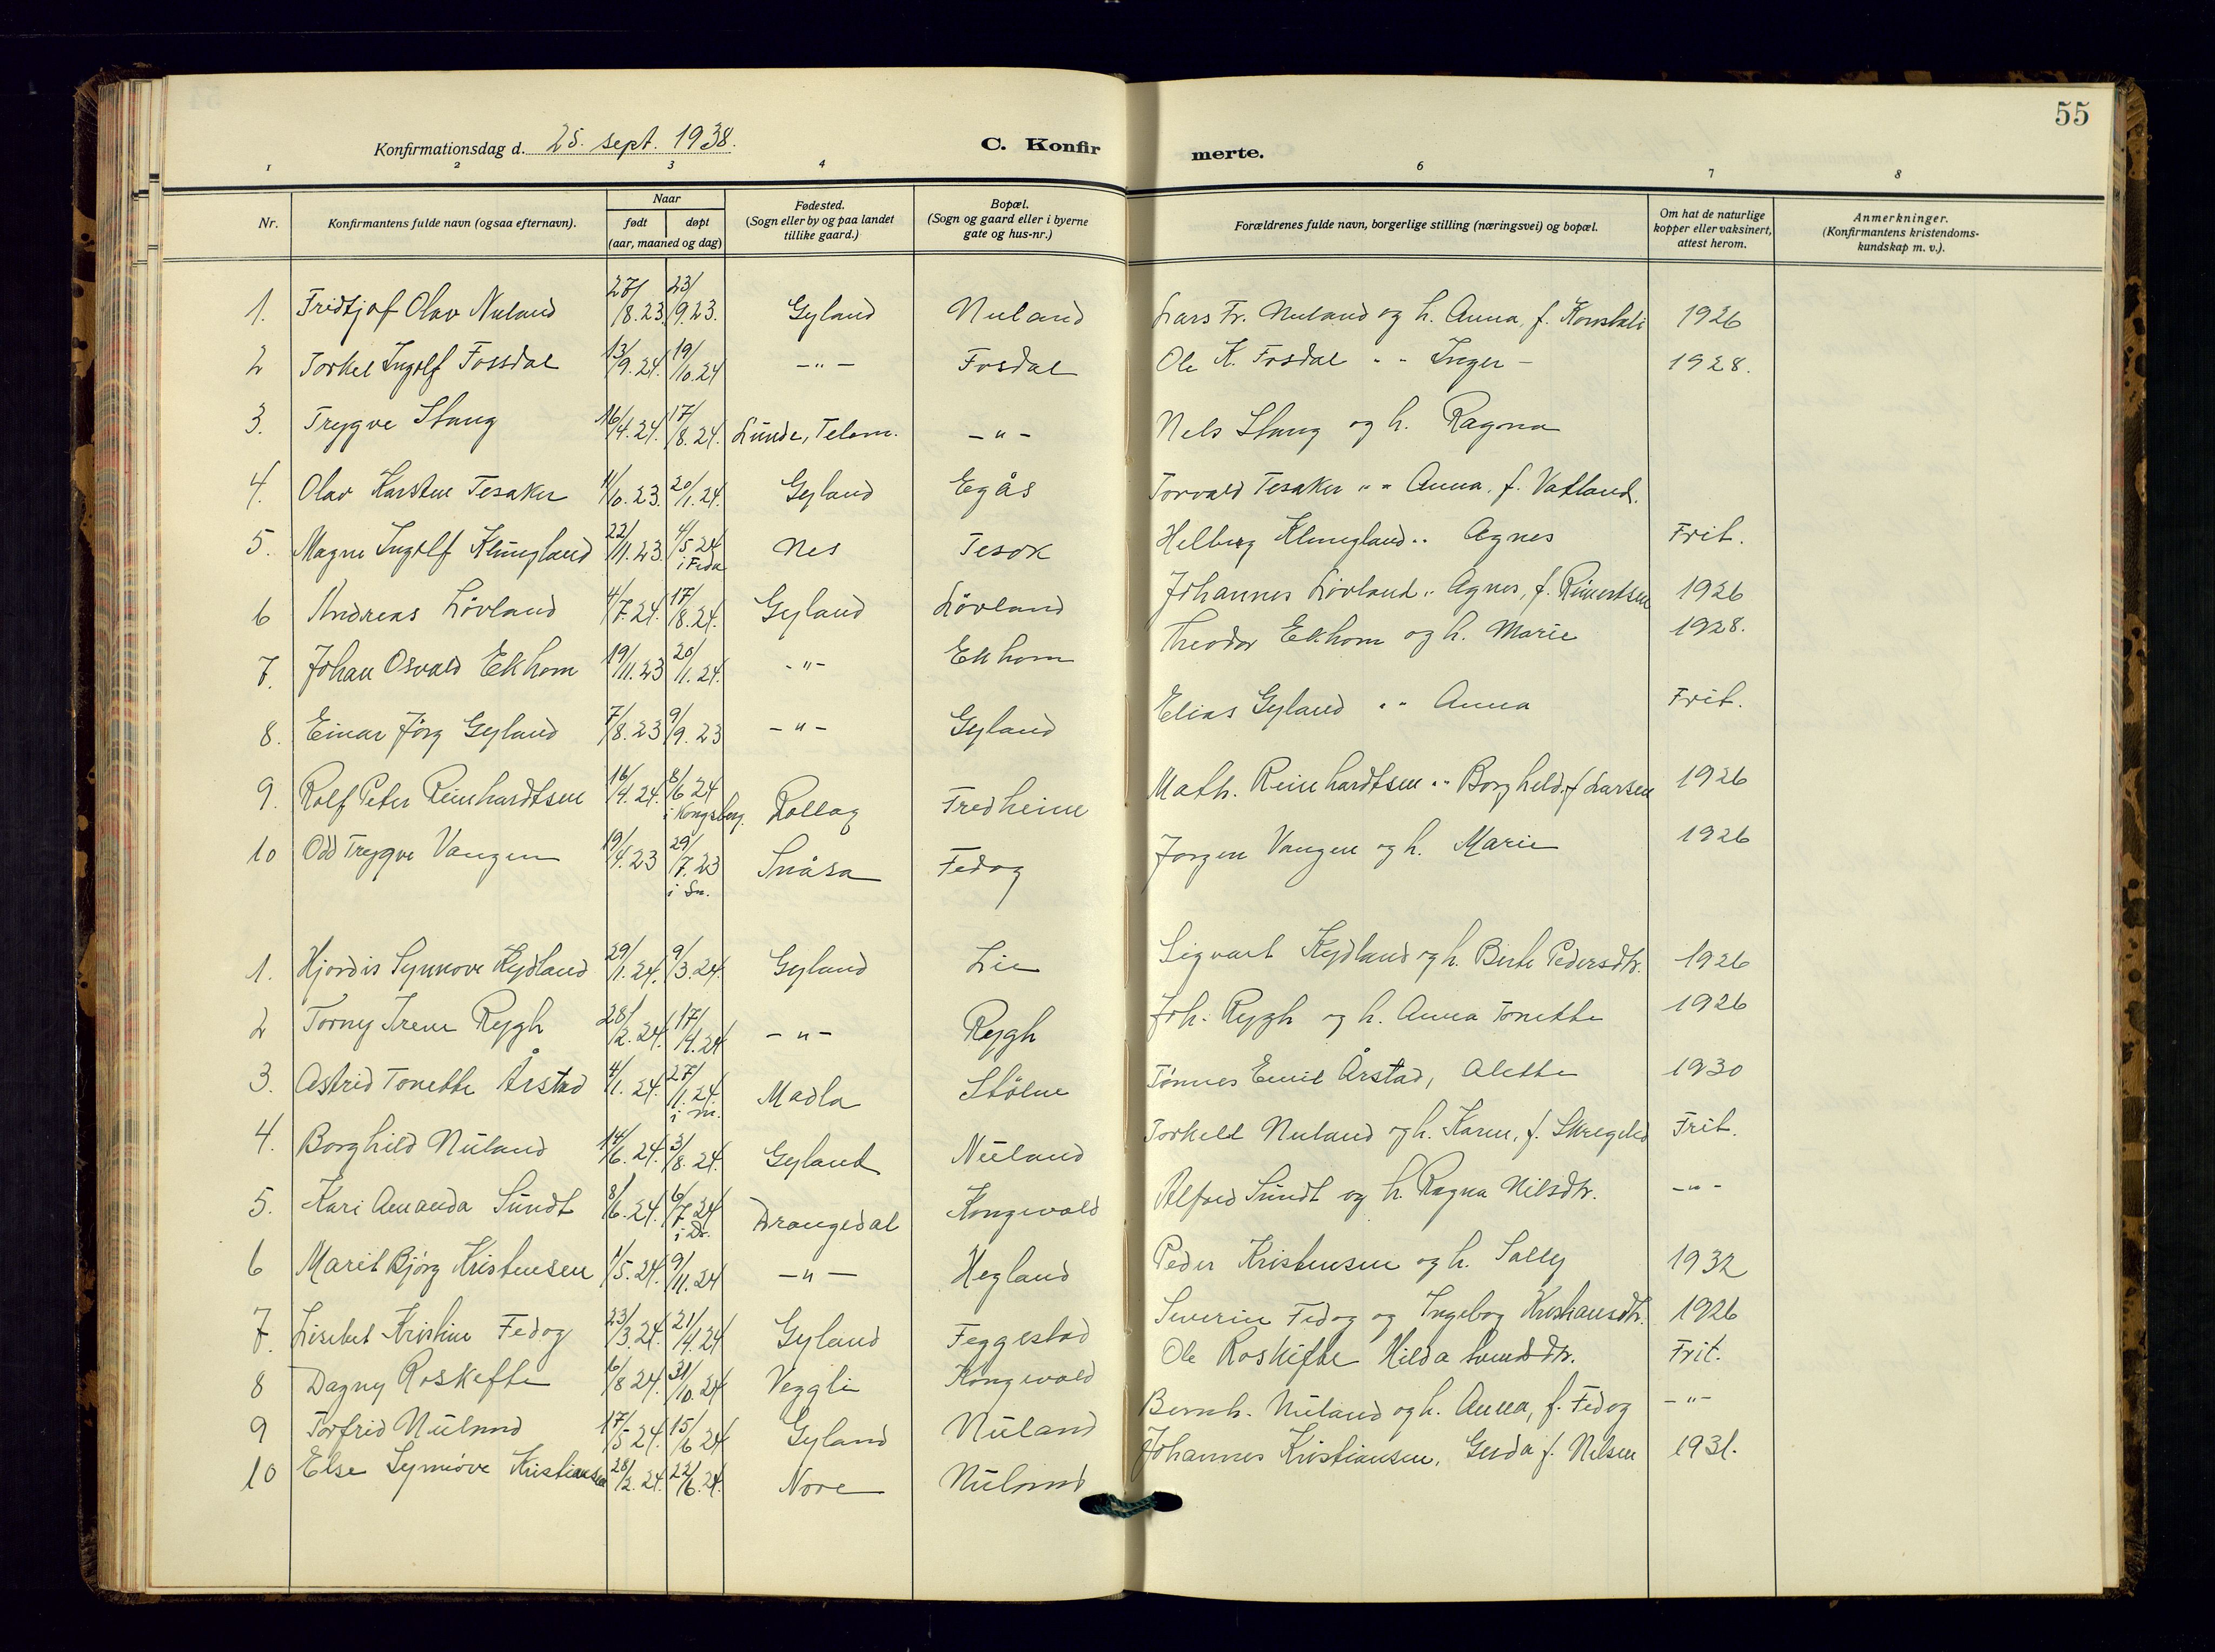 55
Konfirmationsdag d. 25. sept. 1938.
C. Konfirmerte.
1 2 3 4 6 7 8
Nr. Konfirmantens fulde navn (ogsaa efternavn). Naar født døpt (aar, maaned og dag) Fødested. (Sogn eller by og paa landet tillike gaard.) Bopæl. (Sogn og gaard eller i byerne gate og hus-nr.) Forældrenes fulde navn, borgerlige stilling (næringsvei) og bopæl. Om hat de naturlige kopper eller vaksinert, attest herom. Anmerkninger. (Konfirmantens kristendoms-kundskap m. v.).
1. Fridtjof Olav Nuland 27/8.23 23/9.23. Gyland Nuland Lars Fr. Nuland og h. Anna, f. Konstali 1926
2 Torkel Ingolf Fossdal 13/9.24. 19/10.24 -"- Fosdal Ole K. Fosdal " " Inger - 1928.
3. Trygve Stang 16/4.24. 17/8.24. Lunde, Telem. -"- Nels Stang og h. Ragna
4. Olav Karsten Tesaker 11/10.23. 20/1.24. Gyland Egås Torvald Tesaker " " Anna, f. Vatland.
5. Magne Ingolf Klungland 22/11.23 4/5.24 i Feda Nes Tesok Helberg Klungland " Agnes Frit.
6 Andreas Lövland 4/7.24. 17/8.24. Gyland Lövland Johannes Lövland " Agnes, f. Reinertsen 1926
7. Johan Osvald Ekhom 19/11.23 20/1.24. -"- Ekhom Theodor Ekhom og h. Marie 1928.
8. Einar Jörg Gyland 7/8.23 9/9.23 -"- Gyland Elias Gyland " " Anna Frit.
9. Rolf Peter Reinhardtsen 16/4.24. 8/6 24 i Kongsberg. Rollag Fredheim Math. Reinhardtsen " Borghild, f Larsen 1926
10 Odd Trygve Vangen 19/4.23 29/7.23 i Sn. Snåsa Fedog Jorgen Vangen og h. Marie 1926
1. Hjordis Synnove Kydland 29/1.24. 9/3.24. Gyland Lie Sigvart Kydland og h. Berte Pedersdtr. 1926
2 Torny Irene Rygh 28/2.24. 17/4.24 -"- Rygh Joh. Rygh og h. Anna Tonette 1926
3. Astrid Tonette Årstad 4/1.24. 27/1.24. i M. Madla Stölne Tönnes Emil Årstad, Alette 1930
4. Borghild Nuland 14/6.24. 3/8.24. Gyland Nuland Torkell Nuland og h. Karen, f. Skregelid Frit.
5. Kari Amanda Sundt 8/6.24. 6/7.24 i Dr. Drangedal Kongevold Alfred Sundt og h. Ragna Nilsdtr. -"-
6 Marit Bjórg Kristensen 1/5.24. 9/11.24 -"- Hegland Peder Kristensen og h. Sally 1932
7. Lisebet Kristine Fedog 23/3.24. 21/4.24 Gyland Feggestad Severin Fedog og Ingebog Kristiansdtr. 1926
8 Dagny Roskefte 6/8 24. 31/10.24 Veggli Kongevold Ole Roskifte Hilda Svendsdtr. Frit.
9 Torfrid Nuland 17/5 24. 15/6 24 Gyland Nuland Bernh. Nuland og h. Anna, f. Fedog -"-
10 Else Synnöve Kristiansen 28/2.24. 22/6.24. Nore Nuland Johannes Kristiansen, Gerda f. Nelsen 1931.